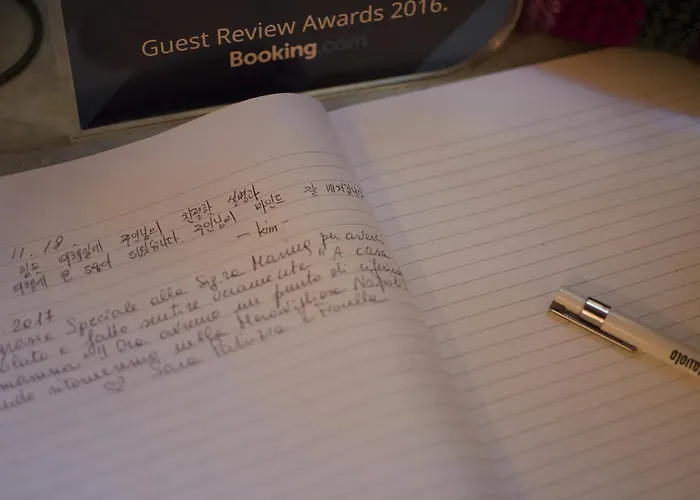 Guest Review Awards 2016.
Booking.com
11. 18
힘든 여행길에 주인님의 친절한 설명과
여행에 큰 도움이 되었습니다. 주인님의 마인드 잘
- kim -
2017
Speciale alla Sig.ra Marina per averci
e fatto sentire veramente "A casa
Ora avremo un punto di
ritorneremo nella Meravigliosa Napoli
♡ Sara Patrizia e Fiorella